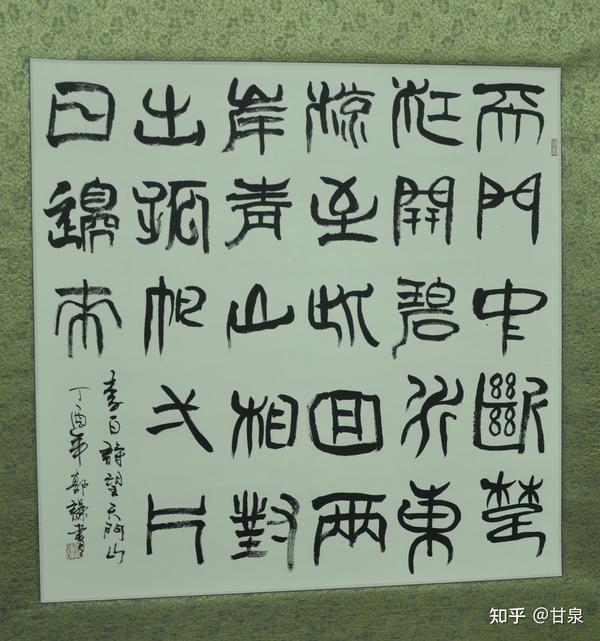 天門中斷楚
江開碧水東
流至此回兩
岸青山相對
出孤帆弌片
日邊來
李白詩望天門山
丁酉年郭謙書
知乎 @甘泉